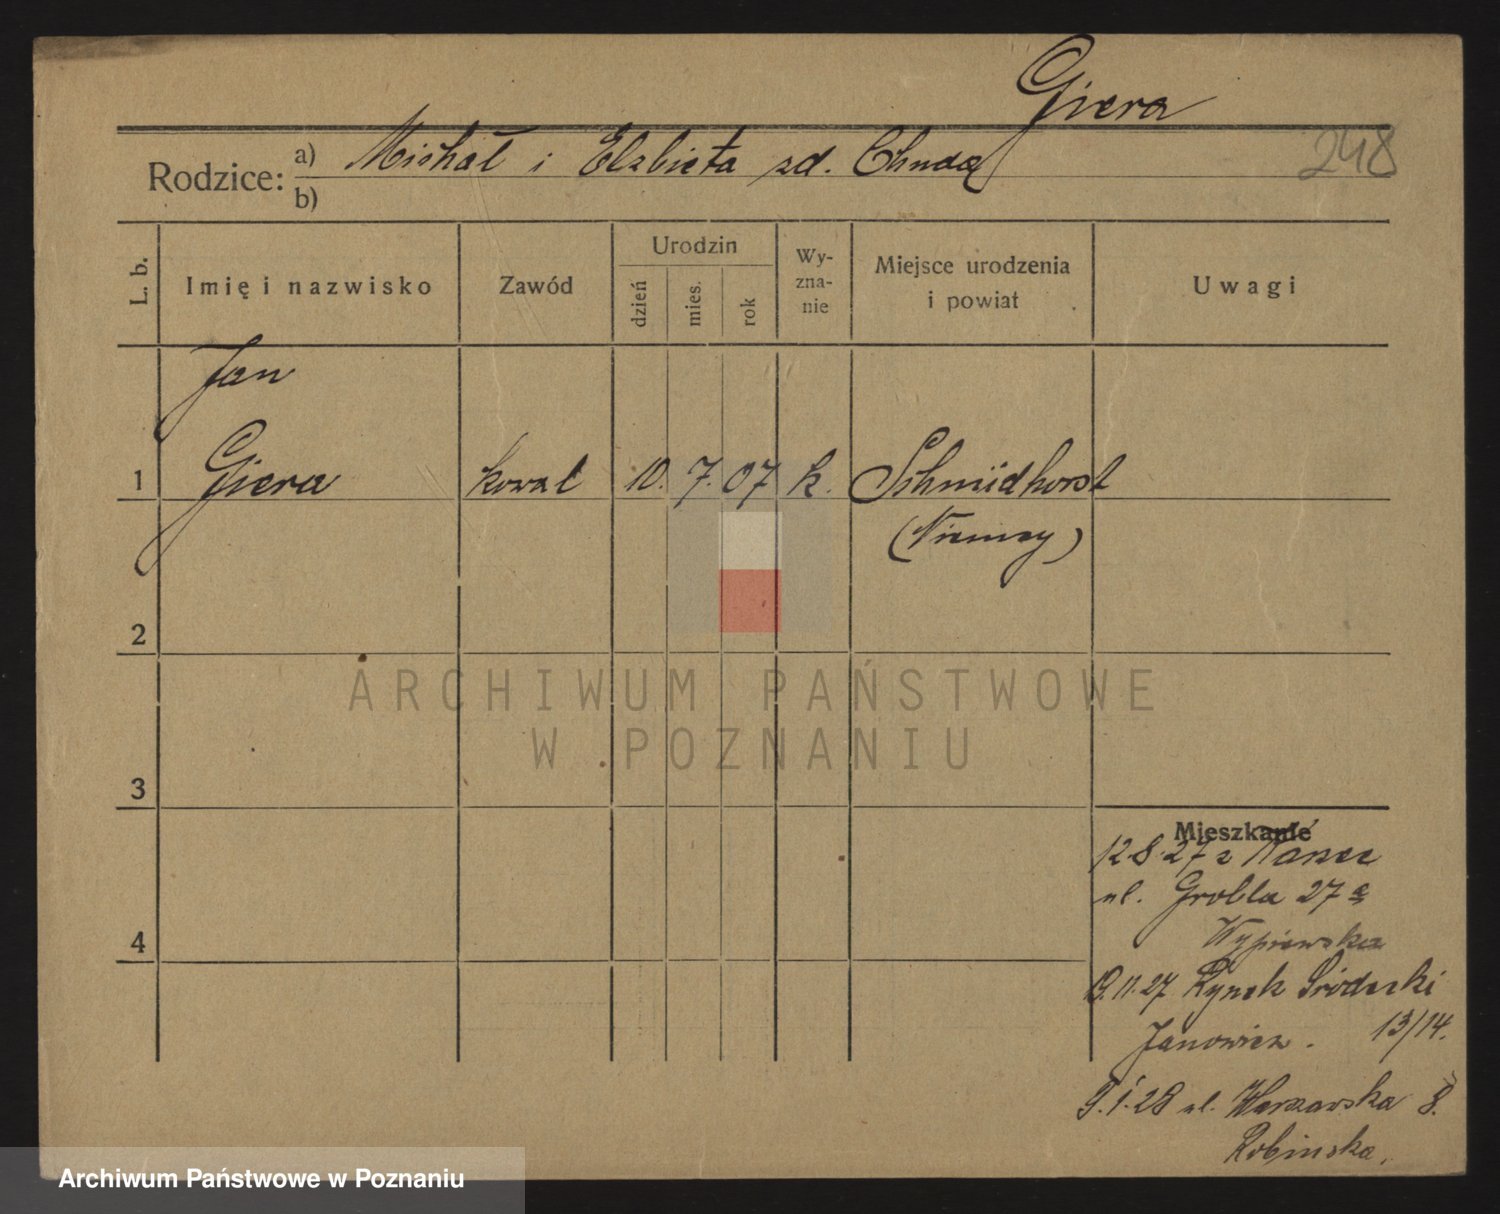 Giera
248
Rodzice: a) Michał i Elżbieta zd. Chuda
b)
L. b.
Imię i nazwisko
Zawód
Urodzin
dzień
mies.
rok
Wy-
zna-
nie
Miejsce urodzenia
i powiat
Uwagi
Jan
1 Giera kowal 10. 7. 07 k. Schmidhorst
(Niemcy)
2
ARCHIWUM PAŃSTWOWE
W POZNANIU
3
Mieszkanie
12.8.27 z
ul. Grobla 27a
Wypiewska
19.11.27 Rynek Śródecki
Janowicz. 13/14.
9.1.28 ul. Warszawska 8.
Robinska.
4
Archiwum Państwowe w Poznaniu